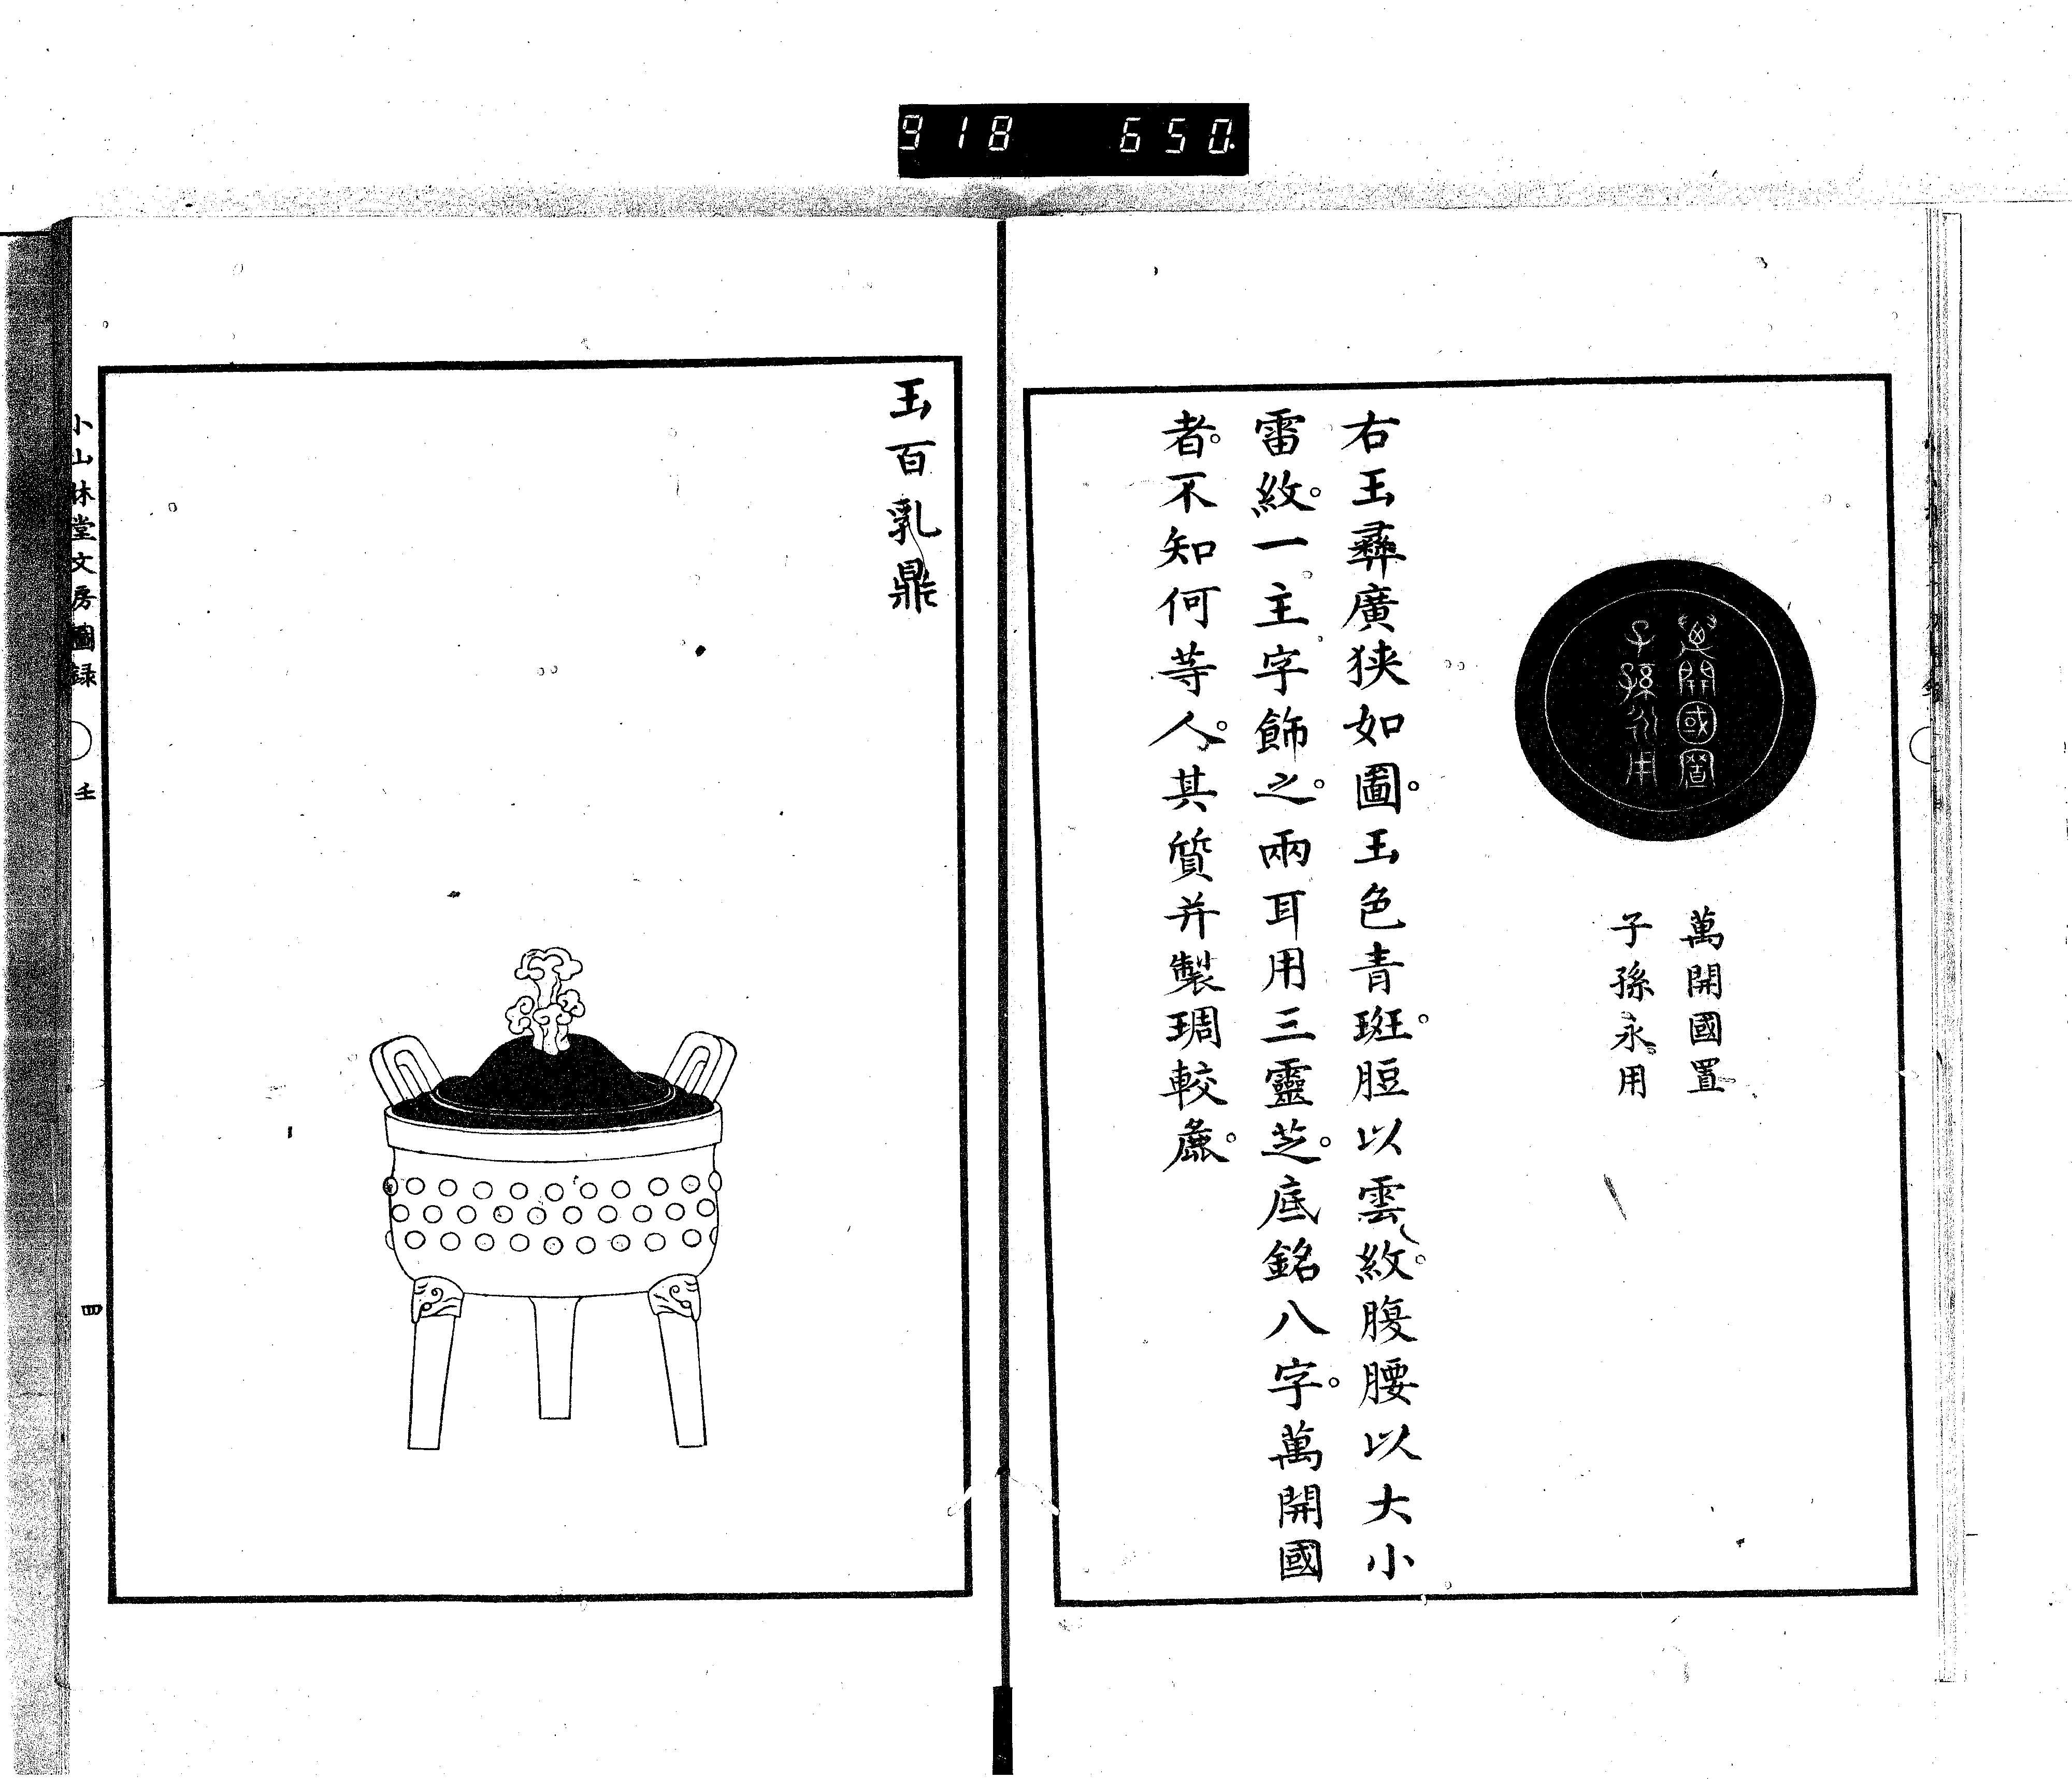 918 650.
萬開國置
子孫永用
萬開國置
子孫永用
右玉彝廣狹如圖。玉色青斑。脰以雲紋。腹腰以大小
雷紋。一主字飾之。兩耳用三靈芝。底銘八字。萬開國
者。不知何等人。其質并製琱較麤。
玉百乳鼎
小山林堂文房圖録
壬
四